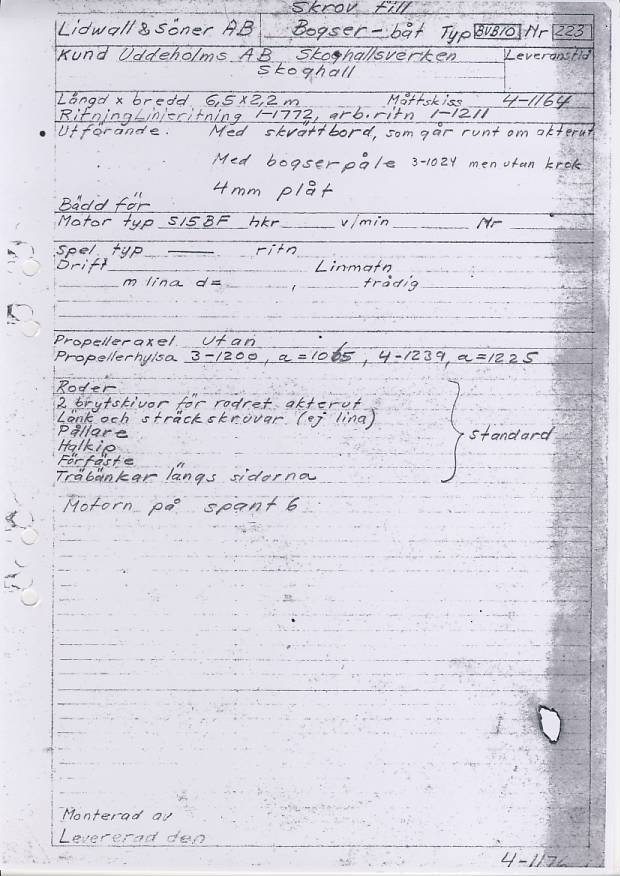 Skrov till
Lidwall & Söner AB Bogser-båt Typ BVB10 Nr 223
Kund Uddeholms AB Skoghallsverken Leveranstid
Skoghall
Längd x bredd 6,5x2,2 m Måttskiss 4-1164
Ritning Linjeritning 1-1772, arb.ritn 1-1211
Utförande. Med skvättbord, som går runt om akterut
Med bogserpåle 3-1024 men utan krok
4mm plåt
Bädd för
Motor typ S15BF hkr v/min Nr
Spel, typ ritn
Drift Linmatn
m lina d= , trådig
Propelleraxel Utan
Propellerhylsa 3-1200, a=1065, 4-1239, a=1225
Roder
2 brytskivor för rodret akterut
Länk och sträckskruvar (ej lina)
Pållare
Halkip
Förfäste
Träbänkar längs sidorna
Standard
Motorn på spant 6
Monterad av
Levererad den
4-1176